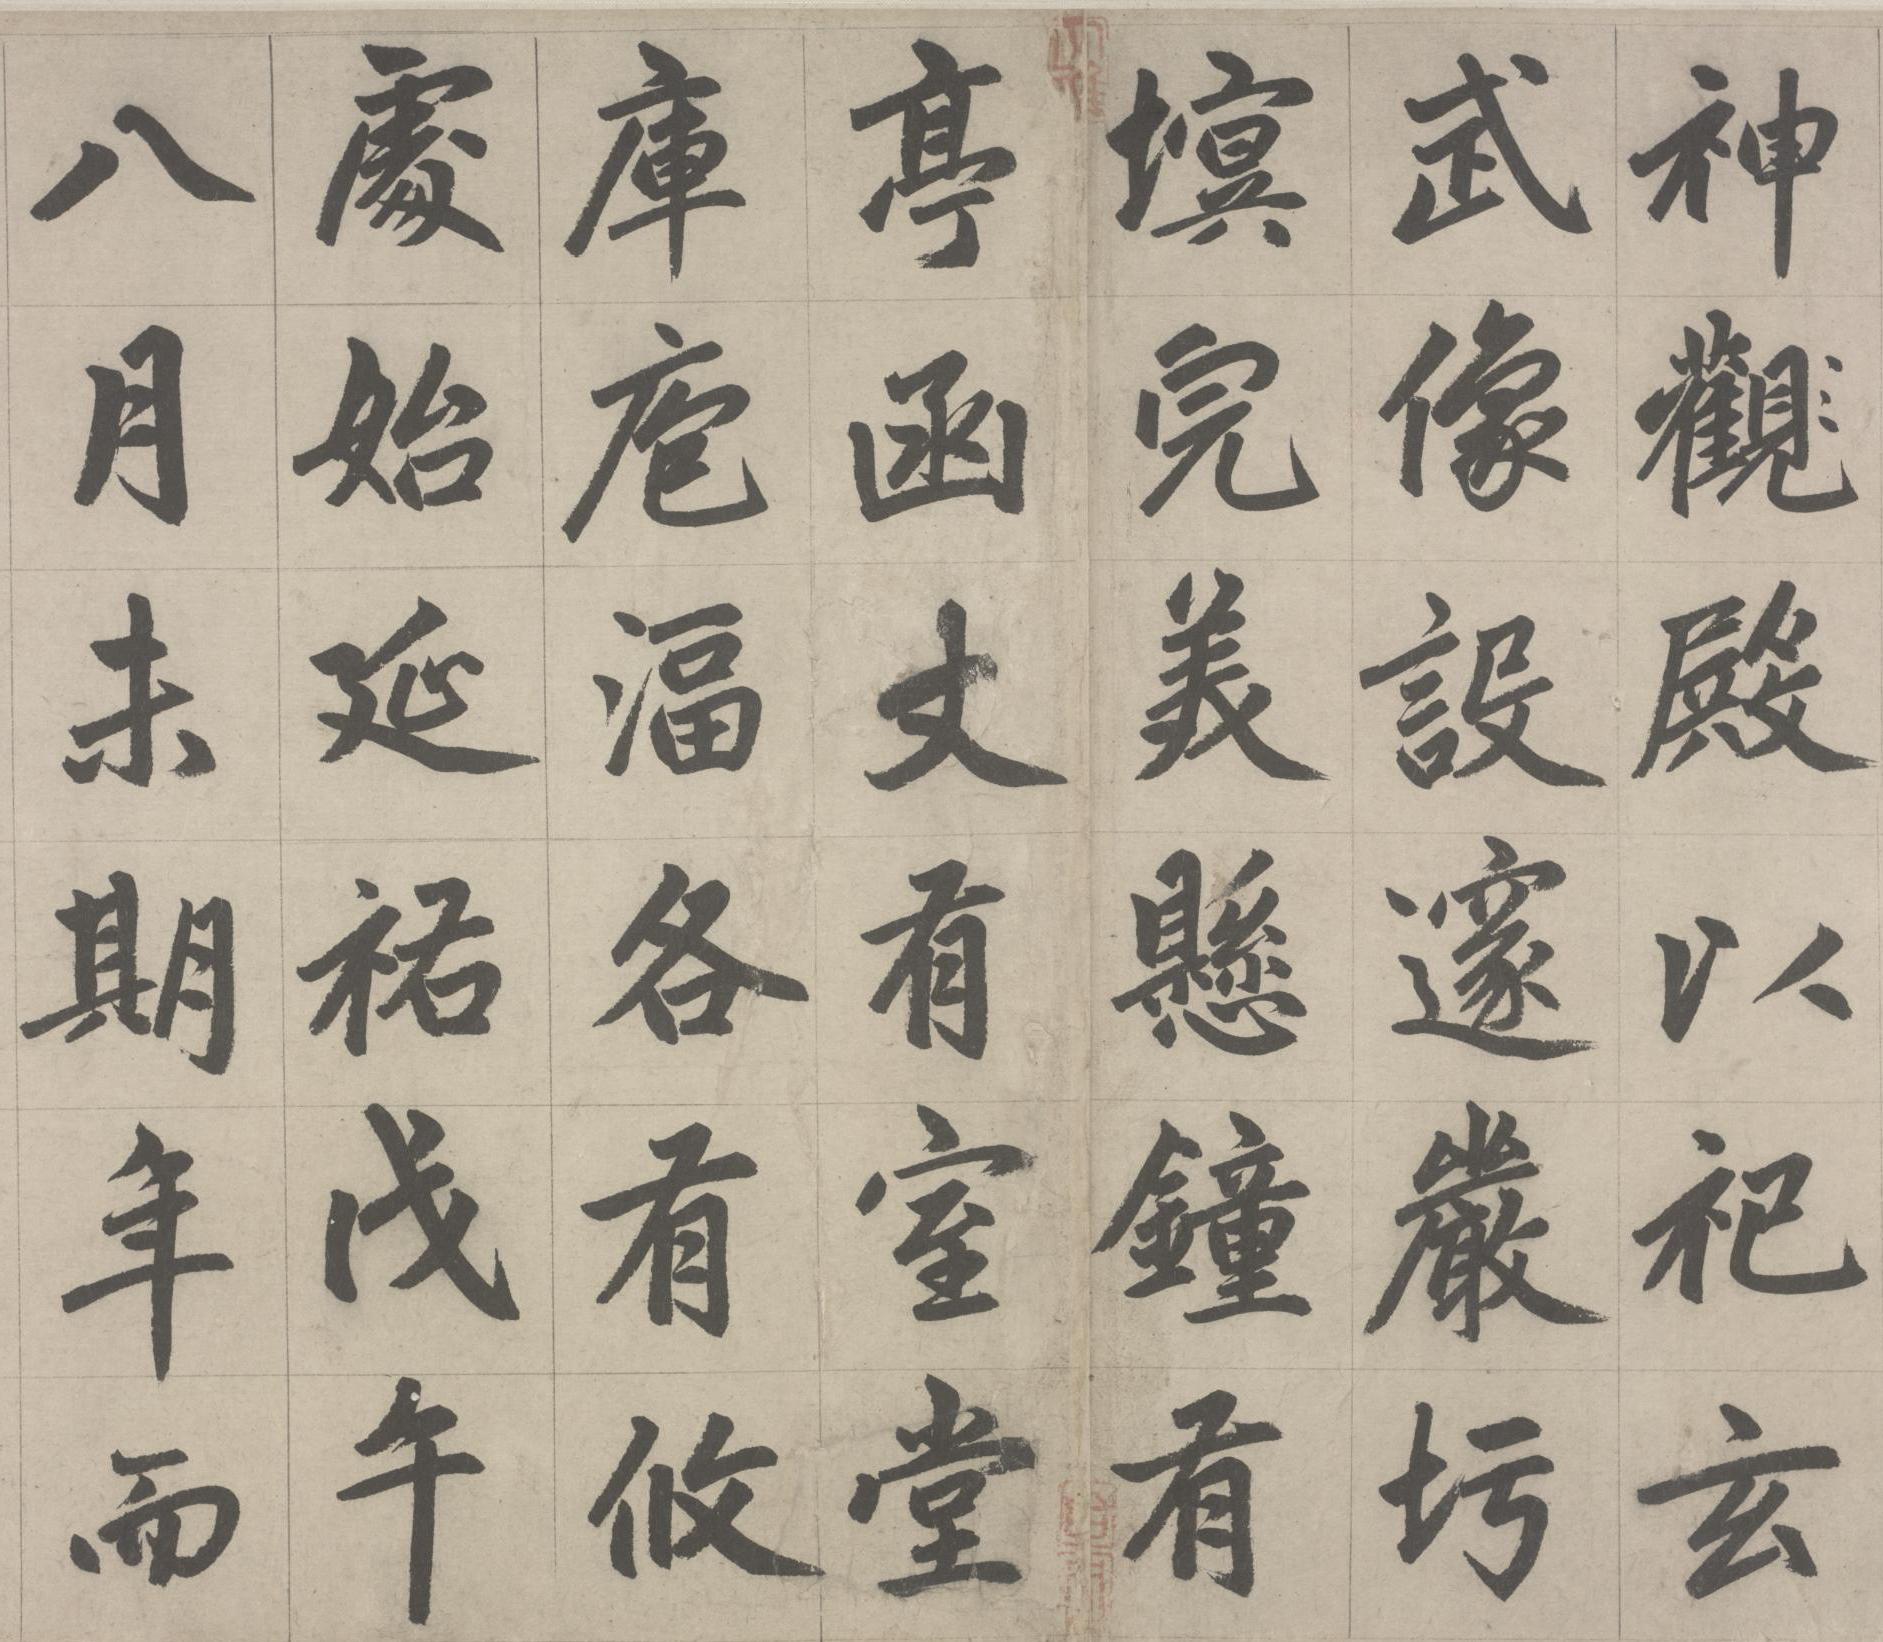 神觀殿以祀玄
武像設邃嚴圬
塓完美懸鐘有
亭函丈有室堂
庫庖湢各有攸
處始延祐戊午
八月未期年而